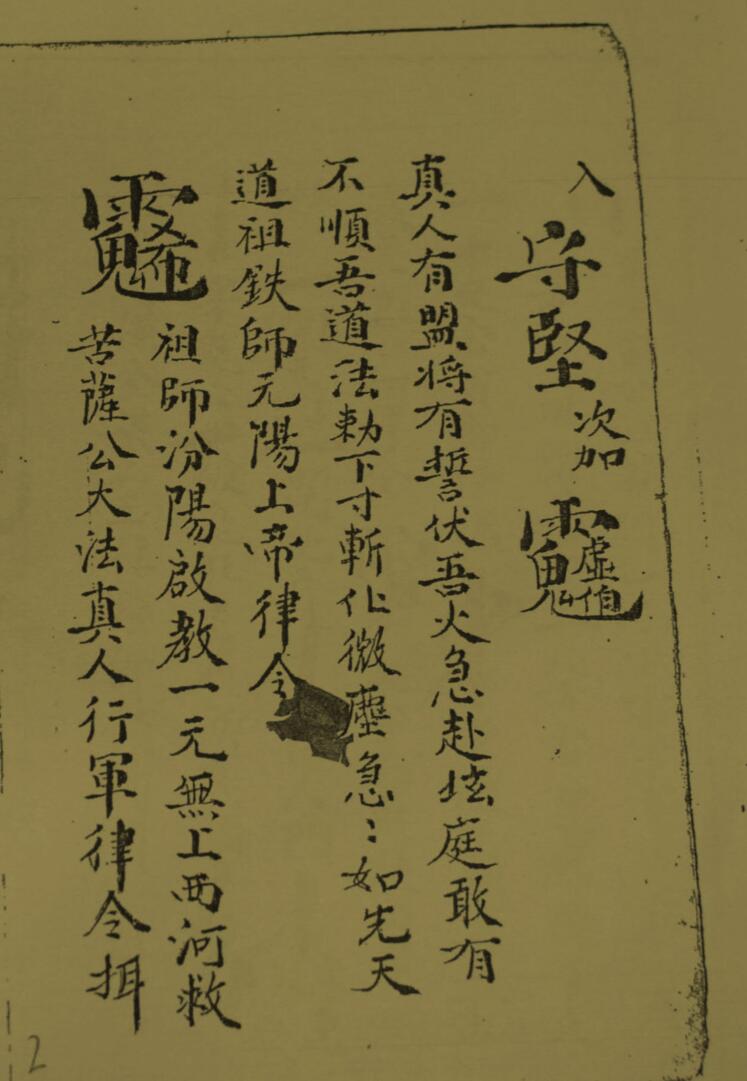 入 守堅 次加
真人有盟将有誓伏吾火急赴坛庭敢有
不順吾道法勅下寸斬化微塵急〻如先天
道祖鉄師元陽上帝律令
祖師汾陽啟教一元無上西河救
苦薩公大法真人行軍律令揖
2